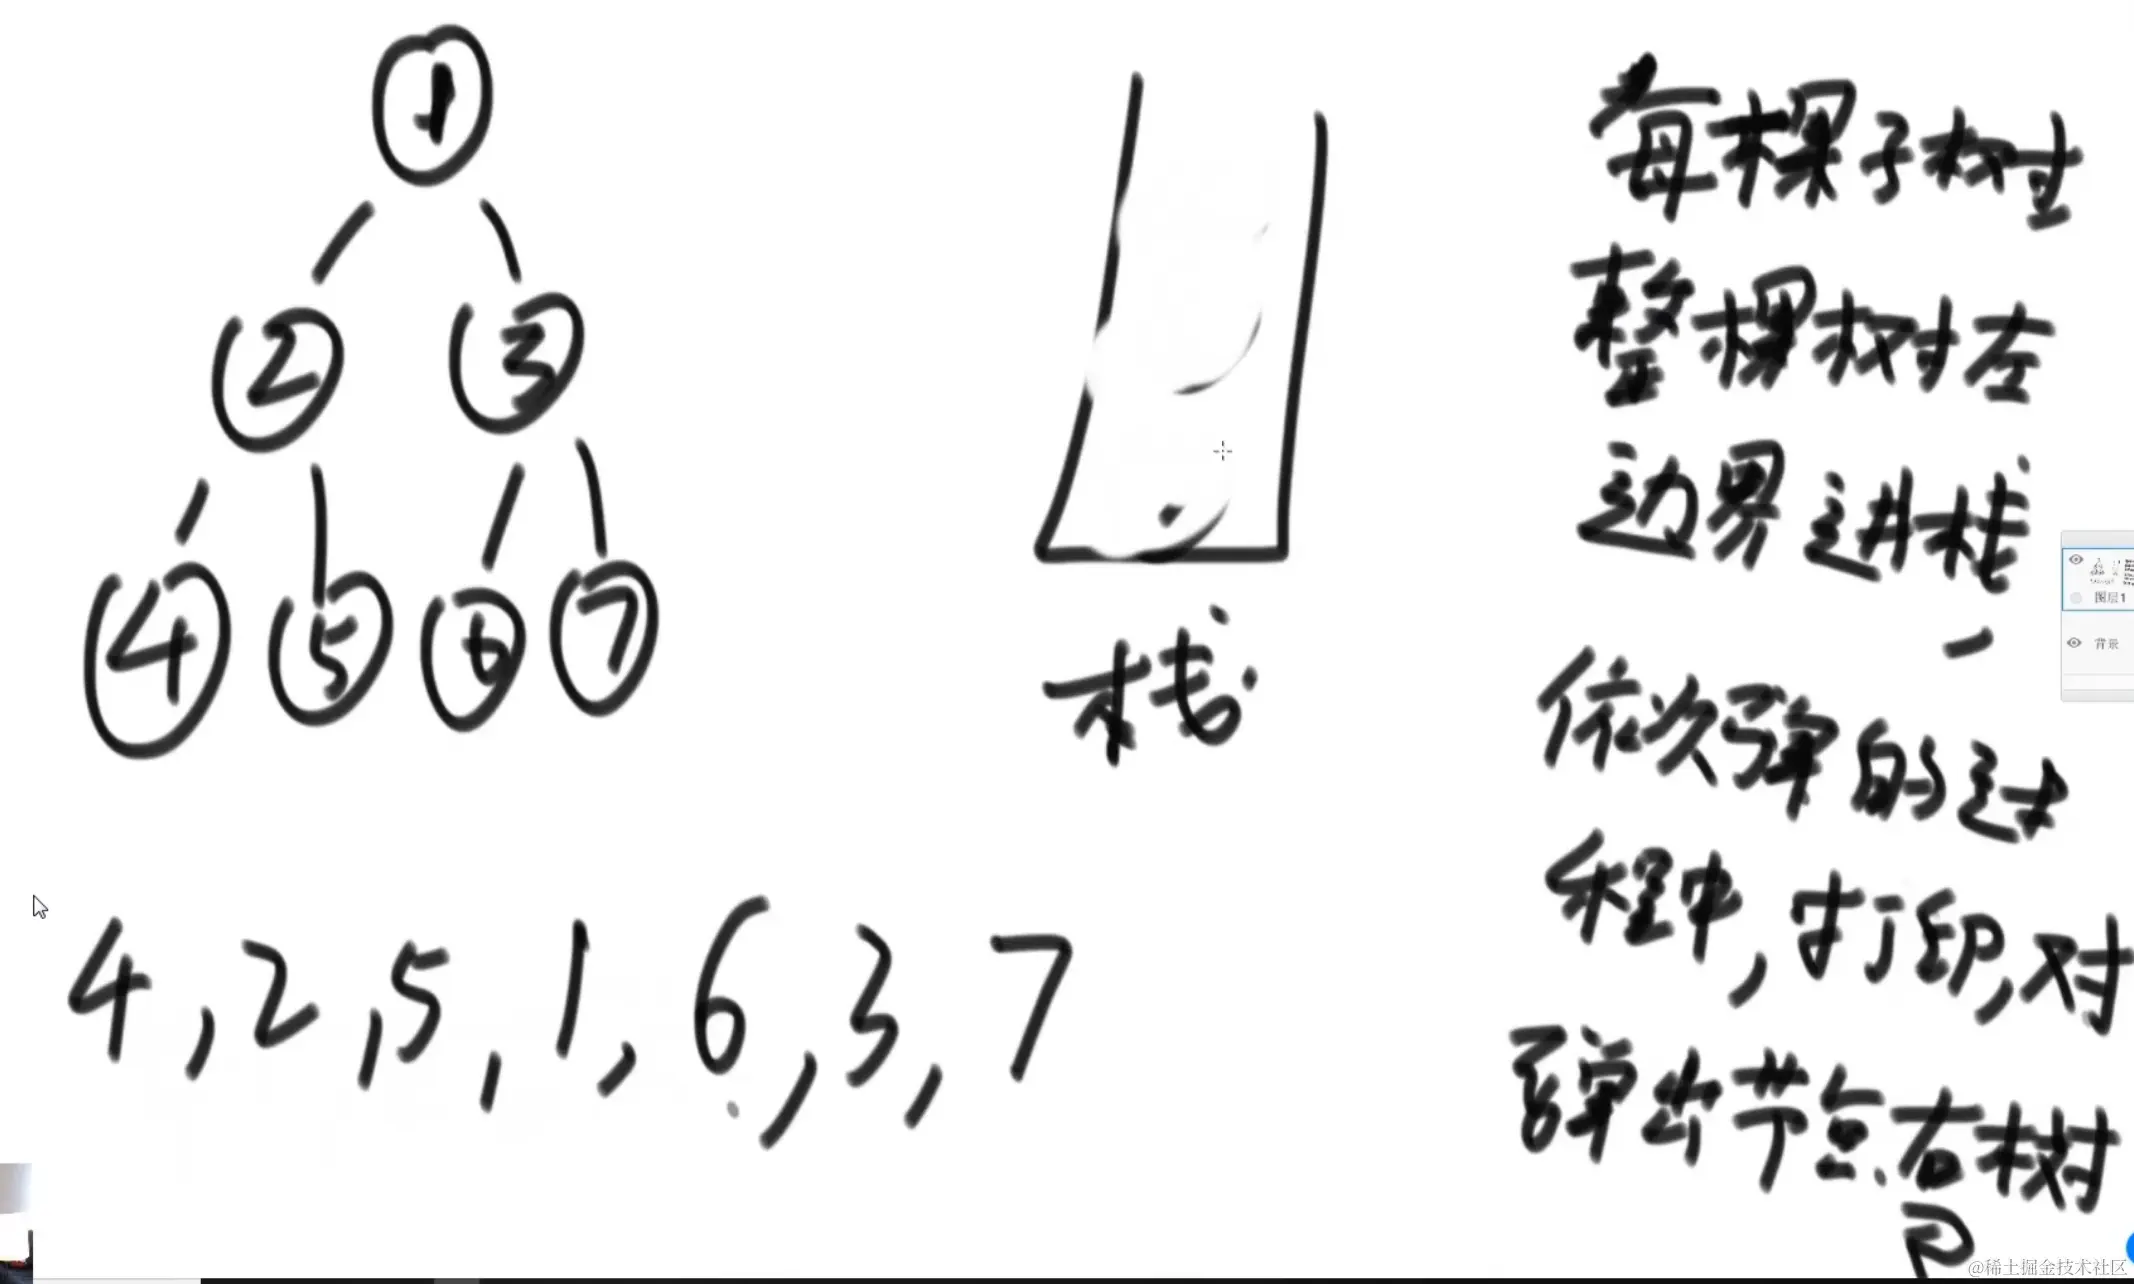 1
2 3
4 5 6 7
栈
4,2,5,1,6,3,7
每棵子树
整棵树左
边界进栈,
依次弹的过
程中,打印,对
弹出节点右树
图层1
背景
@稀土掘金技术社区